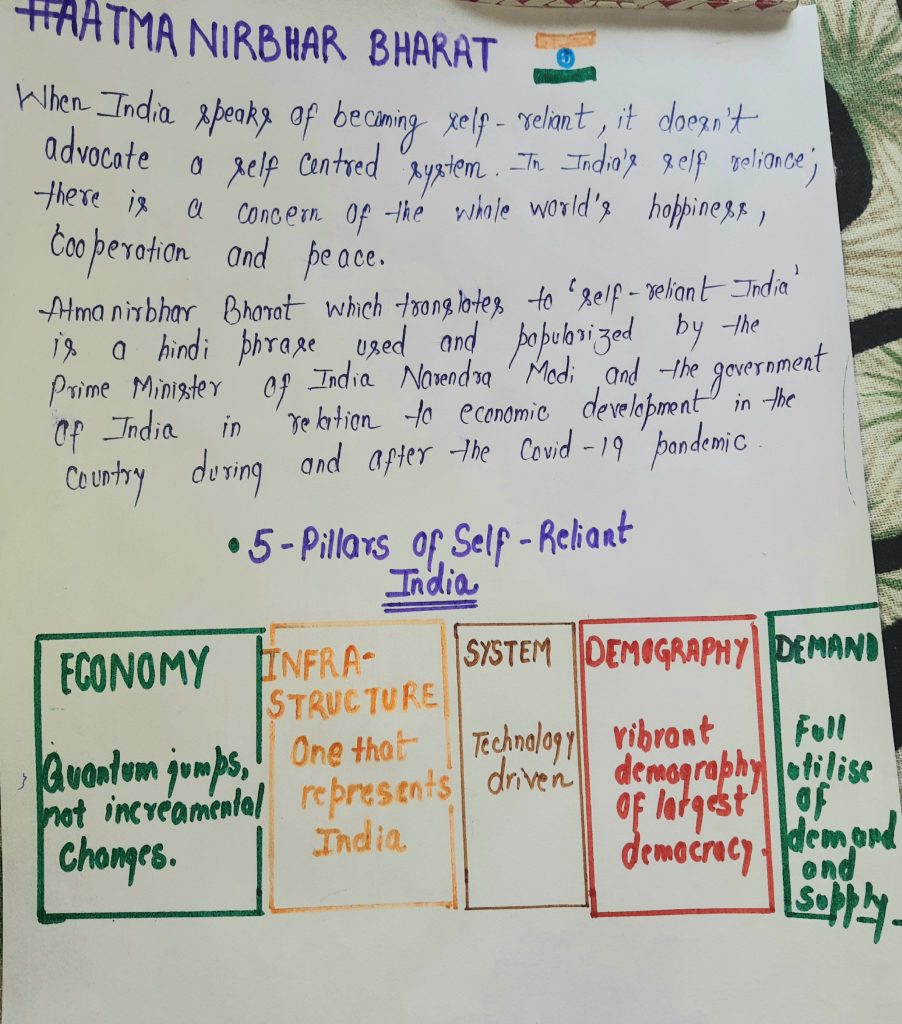 #AATMA NIRBHAR BHARAT
When India speaks of becoming self-reliant, it doesn't
advocate a self centred system. In India's self reliance;
there is a concern of the whole world's happiness,
cooperation and peace.
Atmanirbhar Bharat which translates to 'self-reliant India'
is a hindi phrase used and popularized by the
Prime Minister of India Narendra Modi and the government
of India in relation to economic development in the
country during and after the Covid-19 pandemic.
• 5-Pillars of Self-Reliant
India
ECONOMY
Quantum jumps,
not increamental
changes.
INFRA-
STRUCTURE
One that
represents
India
SYSTEM
Technology
driven
DEMOGRAPHY
vibrant
demography
of largest
democracy.
DEMAND
Full
utilise
of
demand
and
supply.